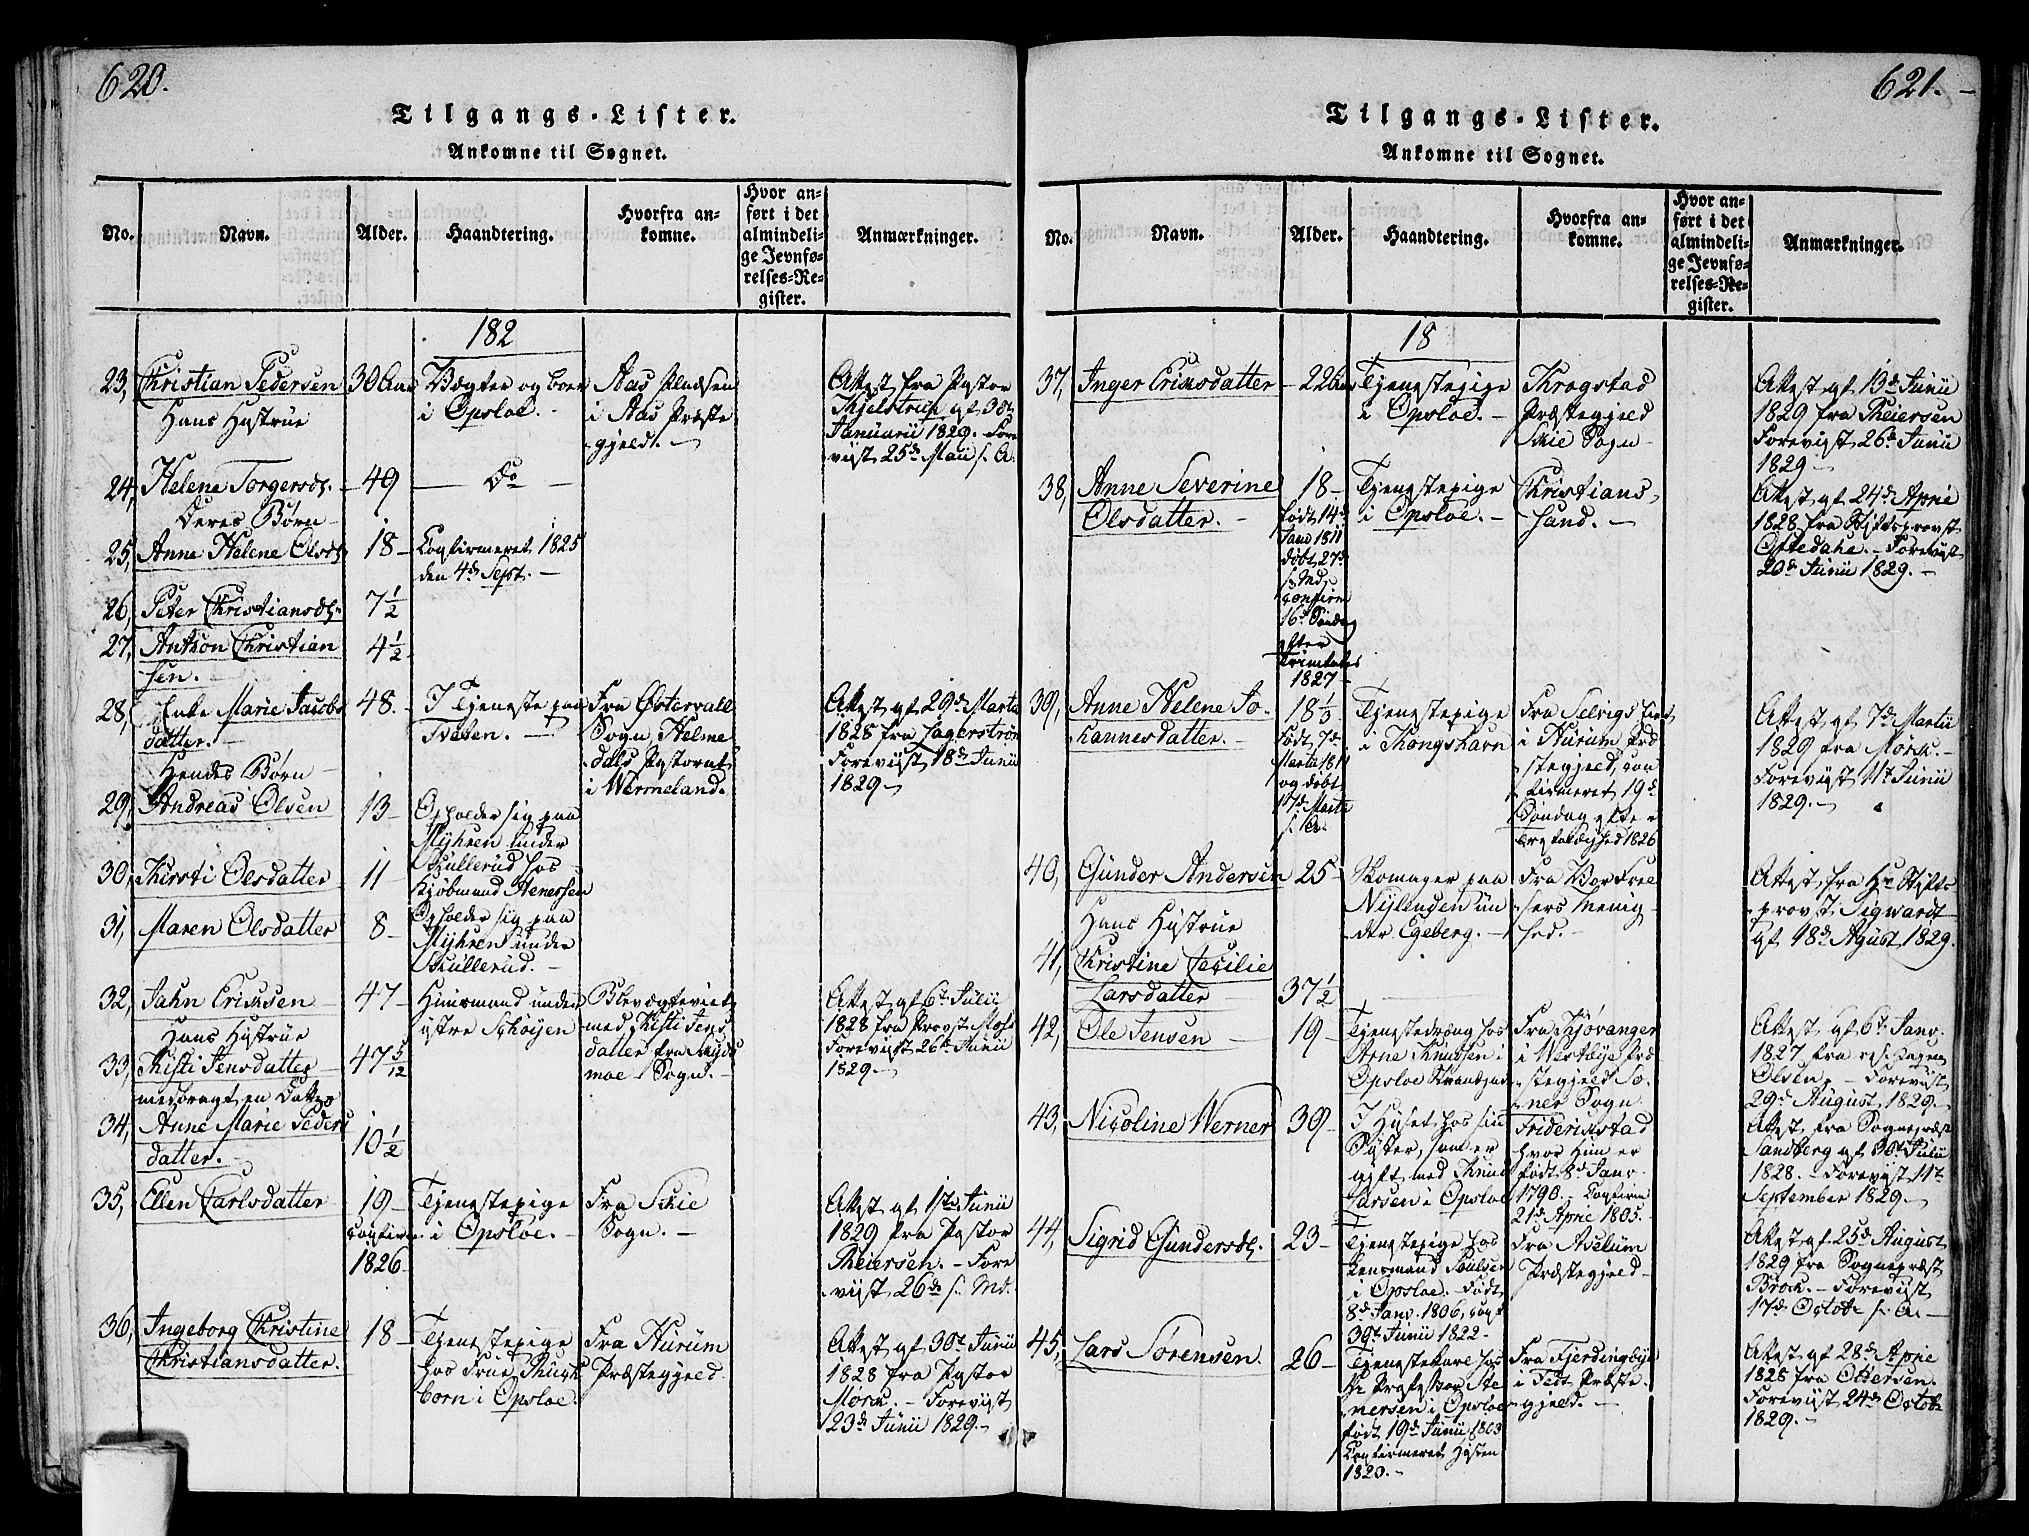 620.
Tilgangs-Lister.
Ankomne til Sognet.
No.
Navn.
Alder.
Haandtering.
Hvorfra an-
komne.
Hvor an-
ført i det
almindeli-
ge Jevnfø-
relses-Re-
gister.
Anmærkninger.
182
23, Christian Pedersen
30 Aar
Vægter og boer
i Opsloe. -
Aas Pladsen
i Aas Præste
gjeld. -
Attest fra Pastor
Kjelstrup af 30t
Januarii 1829. - Fore
viist 25de Maii s. A.
Hans Hustrue
24, Helene Torgersdt. -
49
Do
Deres Børn
25, Anne Helene Olsdt
18 -
Confirmeret 1825
den 4de Sept. -
26, Peter Christiansdt.
7 1/2
27, Anthon Christian
sen. -
4 1/2
28, Enke Marie Jacobs
datter. -
48. -
I Tjeneste paa
Tveten. -
Fra Østervall
Sogn Helme
dals Pastorat
i Wermeland.
Attest af 29de Marts
1828 fra Lagerstrøm
Foreviist 18de Junii
1829 -
Hendes Børn -
29, Andreas Olsen
13 -
Opholder sig paa
Myhren under
Skullerud hos
Kjøbmand Stenersen
30, Kirsti Olsdatter
11 -
31, Maren Olsdatter
8 -
Opholder sig paa
Myhren under
Skullerud. -
32, Jahn Ericksen
47 -
Huusmand under
østre Schøyen
Blev ægteviet
med Kisti Jens
datter fra
moe Sogn. -
Attest af 6te Julii
1828 fra Provst
Foreviist 26de Junii
1829. -
Hans Hustrue
33, Kisti Jensdatter
47 5/12
medbragt en Datter
34, Anne Marie Peders
datter. -
10 1/2
35, Ellen Carlsdatter
19 -
Confirm.
1826 -
Tjenestepige
i Opsloe. -
Fra Schie
Sogn. -
Attest af 1ste Junii
1829 fra Pastor
Theiersen. - Fore
viist 26de s. Md.
36, Ingeborg Christine
Christiansdatter.
18 -
Tjenestepige
hos Frue
born i Opsloe.
Fra Hurum
Præstegjeld
Attest af 30te Junii
1828 fra Pastor
Mørch. - Foreviist
23de Junii 1829. -
621. -
Tilgangs-Lister.
Ankomne til Sognet.
No.
Navn.
Alder.
Haandtering.
Hvorfra an-
komne.
Hvor an-
ført i det
almindeli-
ge Jevnfø-
relses-Re-
gister.
Anmærkninger.
18
37, Inger Ericksdatter
22 Aar
Tjenestepige
i Opsloe. -
Krogstad
Præstegjeld
Schie Sogn -
Attest af 13de Junii
1829 fra Theiersen
Foreviist 26de Junii
1829 -
38, Anne Severine
Olsdatter. -
18 -
født 14de
Janv 1811
døbt 27de
s. Md,
confirm
16de Søndag
efter
Trinitatis
1827 -
Tjenestepige
i Opsloe. -
Christian-
sand. -
Attest af 24de April
1828 fra Stiftsprovst
Oftedahl. - Foreviist
20de Junii 1829. -
39, Anne Helene Jo-
hannesdatter. -
18 1/3
Født 7de
Marts 1811
og døbt
17de Marts
s. A.
Tjenestepige
i Kongshavn
Fra Selvigs
i Hurum Præ
stegjeld, con
firmeret 19de
Søndag efter
Trefoldighed 1826
Attest af 7de Martii
1829 fra Mørch. -
Foreviist 11te Junii
1829. -
40, Gunder Andersen
25 -
Skomager paa
Nylenden un
der Egeberg. -
Fra Vor Frel
sers Menig
hed. -
Attest fra Hr. Stifts-
provst Sigwardt
af 18de August 1829.
Hans Hustrue
41, Christine Cecilie
Larsdatter -
37 1/2
42, Ole Jensen
19 -
Tjenestedreng hos
Arne Knudsen i
Opsloe
Fra Kjøvanger
i Westbye Præ
stegjeld So
ner Sogn
Attest af 6te Janv.
1827 fra
Olsen. - Foreviist
29de August 1829. -
43, Nicoline Werner
39 -
I Huset hos sin
Syster, som er
gift med Knud
Larsen i Opsloe
Friderichstad
hvor hun er
født 8de Janv.
1790. - Confirm
21de April 1805.
Attest fra Sognepræst
Sandberg af 30te Julii
1828. - Foreviist 11te
September 1829. -
44, Sigrid Gundersdt.
23 -
Tjenestepige hos
Lensmand Poulsen
i Opsloe. Født
8de Janv. 1806, conf.
30te Junii 1822 -
Fra Aselum
Præstegjeld -
Attest af 25de August
1829 fra Sognepræst
Broch. - Foreviist
17de Octobr s. A. -
45, Lars Sørensen.
26 -
Tjenestekarl hos
Hr Professor Ste
nersen i Opsloe
født 19de Junii 1803
Confirmeret Høsten
1820. -
Fra Fjerdingbye
i Fett Præste
gjeld. -
Attest af 28de April
1828 fra Ottersen.
Foreviist 24de Octobr
1829. -